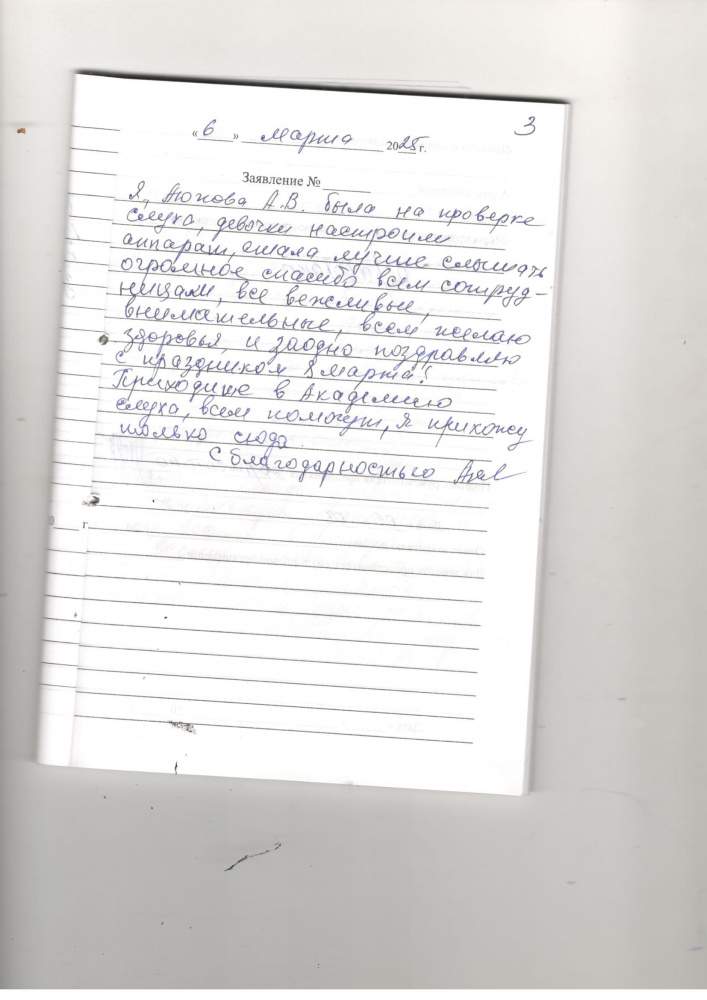 3
« 6 » марта 2025 г.
Заявление №
Я, Аюпова А.В. была на проверке
слуха, девочки настроили
аппарат, стала лучше слышать
огромное спасибо всем сотруд-
ницам, все вежливые,
внимательные, всем желаю
здоровья, и заодно поздравляю
с праздником 8 марта!
Приходите в Академию
слуха, всем помогут, я прихожу
только сюда.
С благодарностью
г.